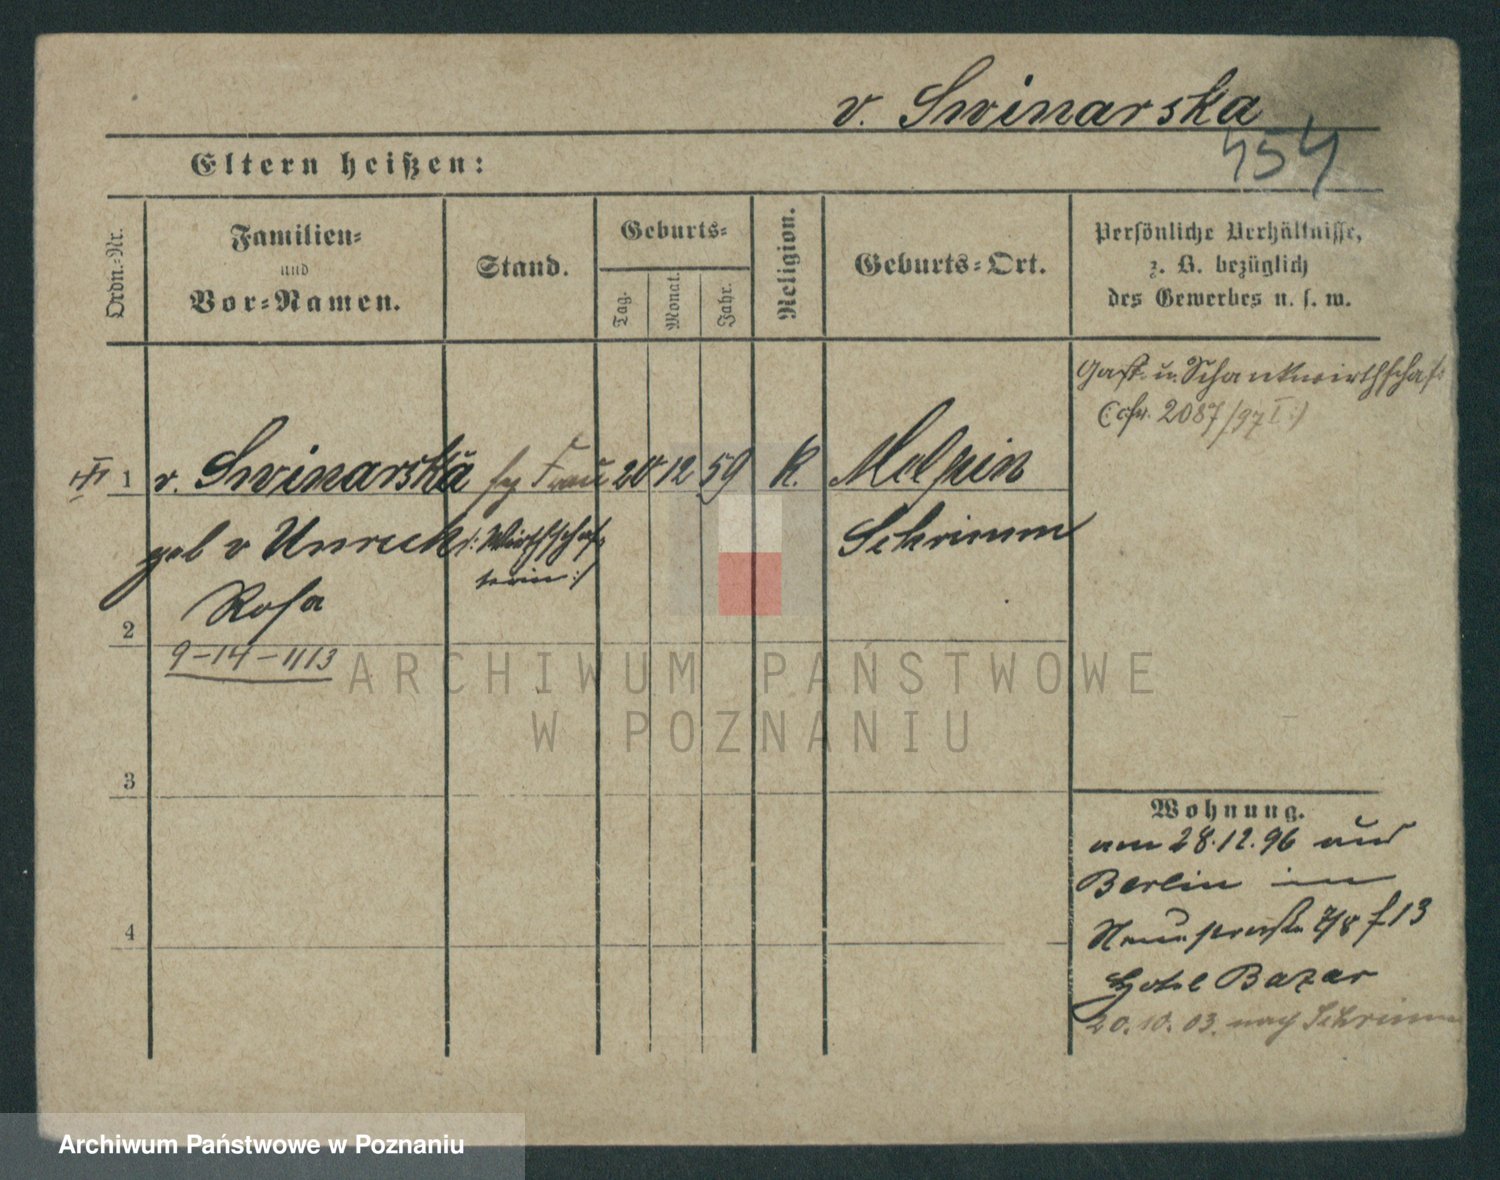 v. Swinarska
454
Eltern heißen:
Ordn.-Nr.
Familien-
und
Vor-Namen.
Stand.
Geburts-
Tag.
Monat.
Jahr.
Religion.
Geburts-Ort.
Persönliche Verhältnisse,
z. B. bezüglich
des Gewerbes u. s. w.
Gast- u. Schankwirthschaft
(: cfr. 2087/97 I :)
1 v. Swinarska Frau 20 12 59 k. Melpin
geb v Unruh (: Wirthschaf- Schrimm
terin :)
Rosa
2
9-14-1113
3
4
Wohnung.
am 28.12.96 aus
Berlin in
Neuestraße 7/8 f 13
Hotel Bazar
20.10.03. nach Schrimm
ARCHIWUM PAŃSTWOWE
W POZNANIU
Archiwum Państwowe w Poznaniu